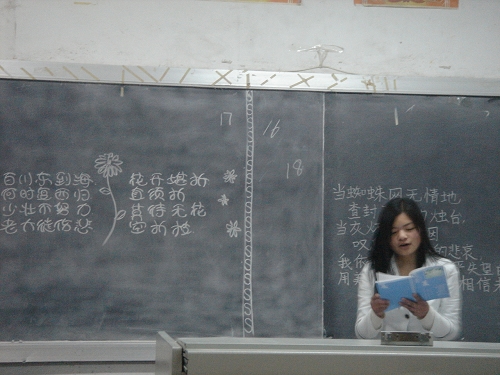 百川东到海
何时复西归
少壮不努力
老大徒伤悲
花开堪折
直须折
莫待无花
空折枝
17
16
18
当蜘蛛网无情地
查封
台
当灰
叹
的悲哀
我
失望
用
相信